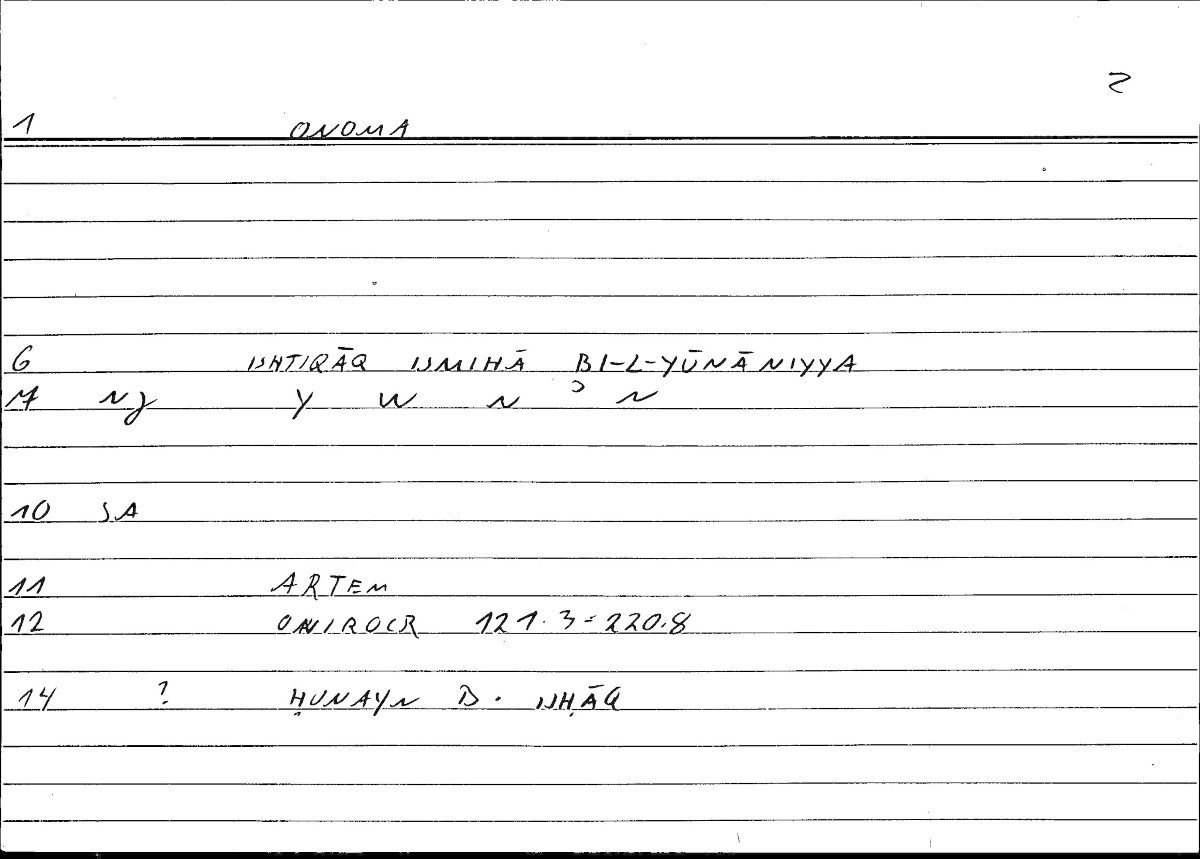 2
1 ONOMA
6 ISHTIQĀQ ISMIHĀ BI-L-YŪNĀNIYYA
7 NJ Y W N ʾ N
10 SA
11 ARTEM
12 ONIROCR 121.3=220.8
14 ? ḤUNAYN B. ISḤĀQ